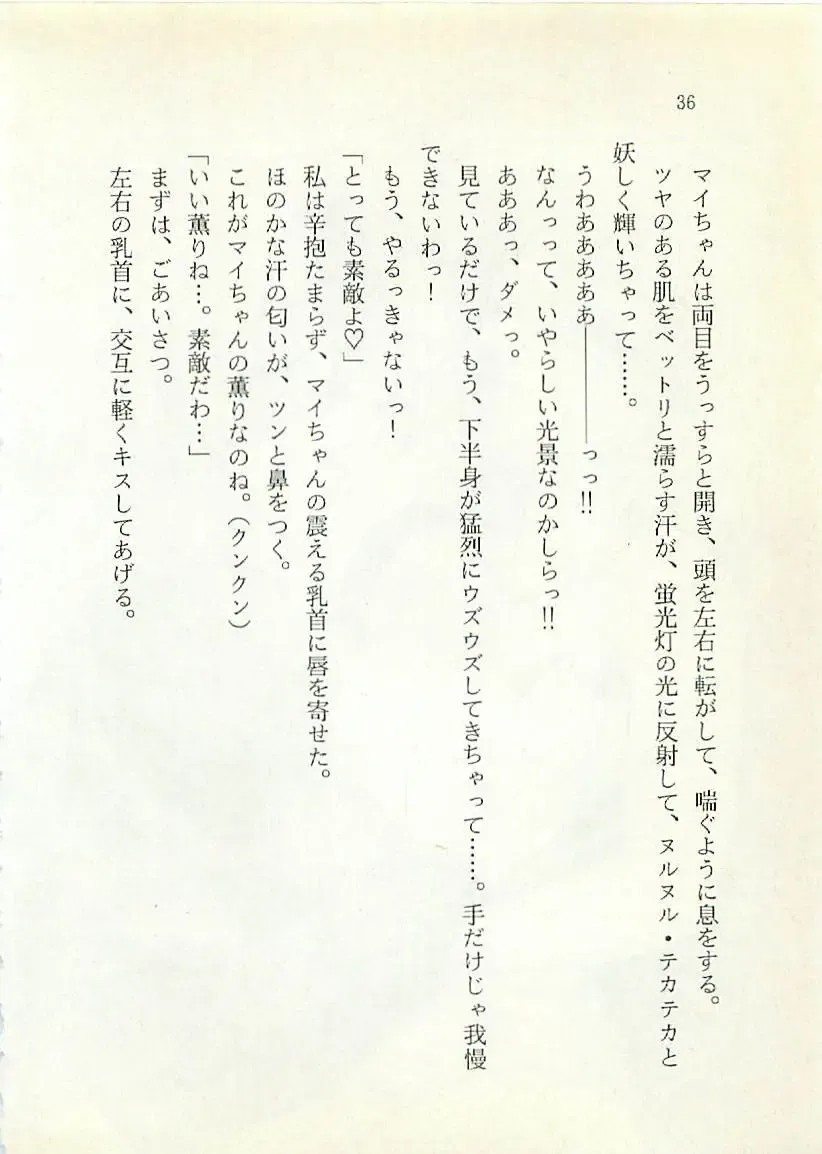 36
マイちゃんは両目をうっすらと開き、頭を左右に転がして、喘ぐように息をする。
ツヤのある肌をベットリと濡らす汗が、蛍光灯の光に反射して、ヌルヌル・テカテカと
妖しく輝いちゃって……。
うわああああああ――――っっ!!
なんっって、いやらしい光景なのかしらっ!!
あああっ、ダメっ。
見ているだけで、もう、下半身が猛烈にウズウズしてきちゃって……。手だけじゃ我慢
できないわっ!
もう、やるっきゃないっ!
「とっても素敵よ♡」
私は辛抱たまらず、マイちゃんの震える乳首に唇を寄せた。
ほのかな汗の匂いが、ツンと鼻をつく。
これがマイちゃんの薫りなのね。(クンクン)
「いい薫りね…。素敵だわ…」
まずは、ごあいさつ。
左右の乳首に、交互に軽くキスしてあげる。